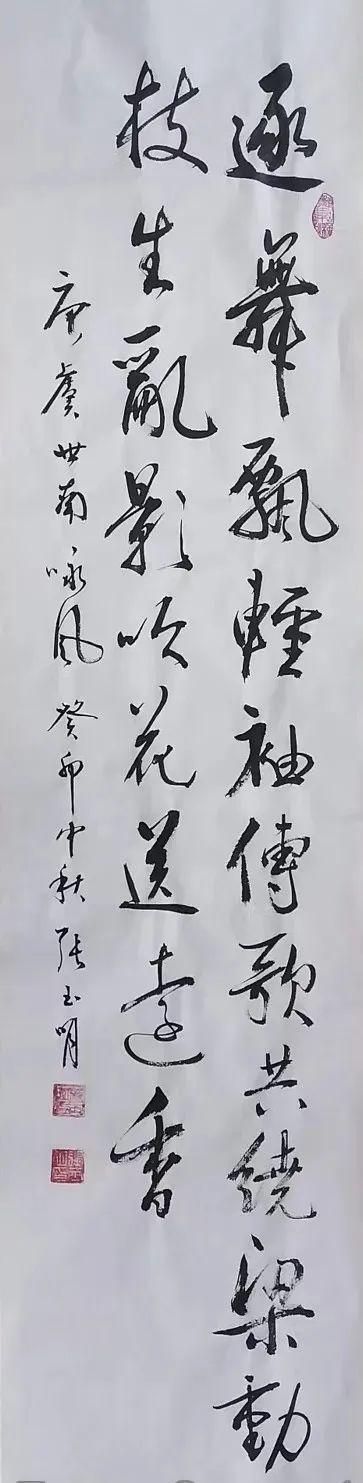 逐舞飄輕袖傳歌共繞梁動
枝生亂影吹花送遠香
唐虞世南咏风癸卯中秋張玉明